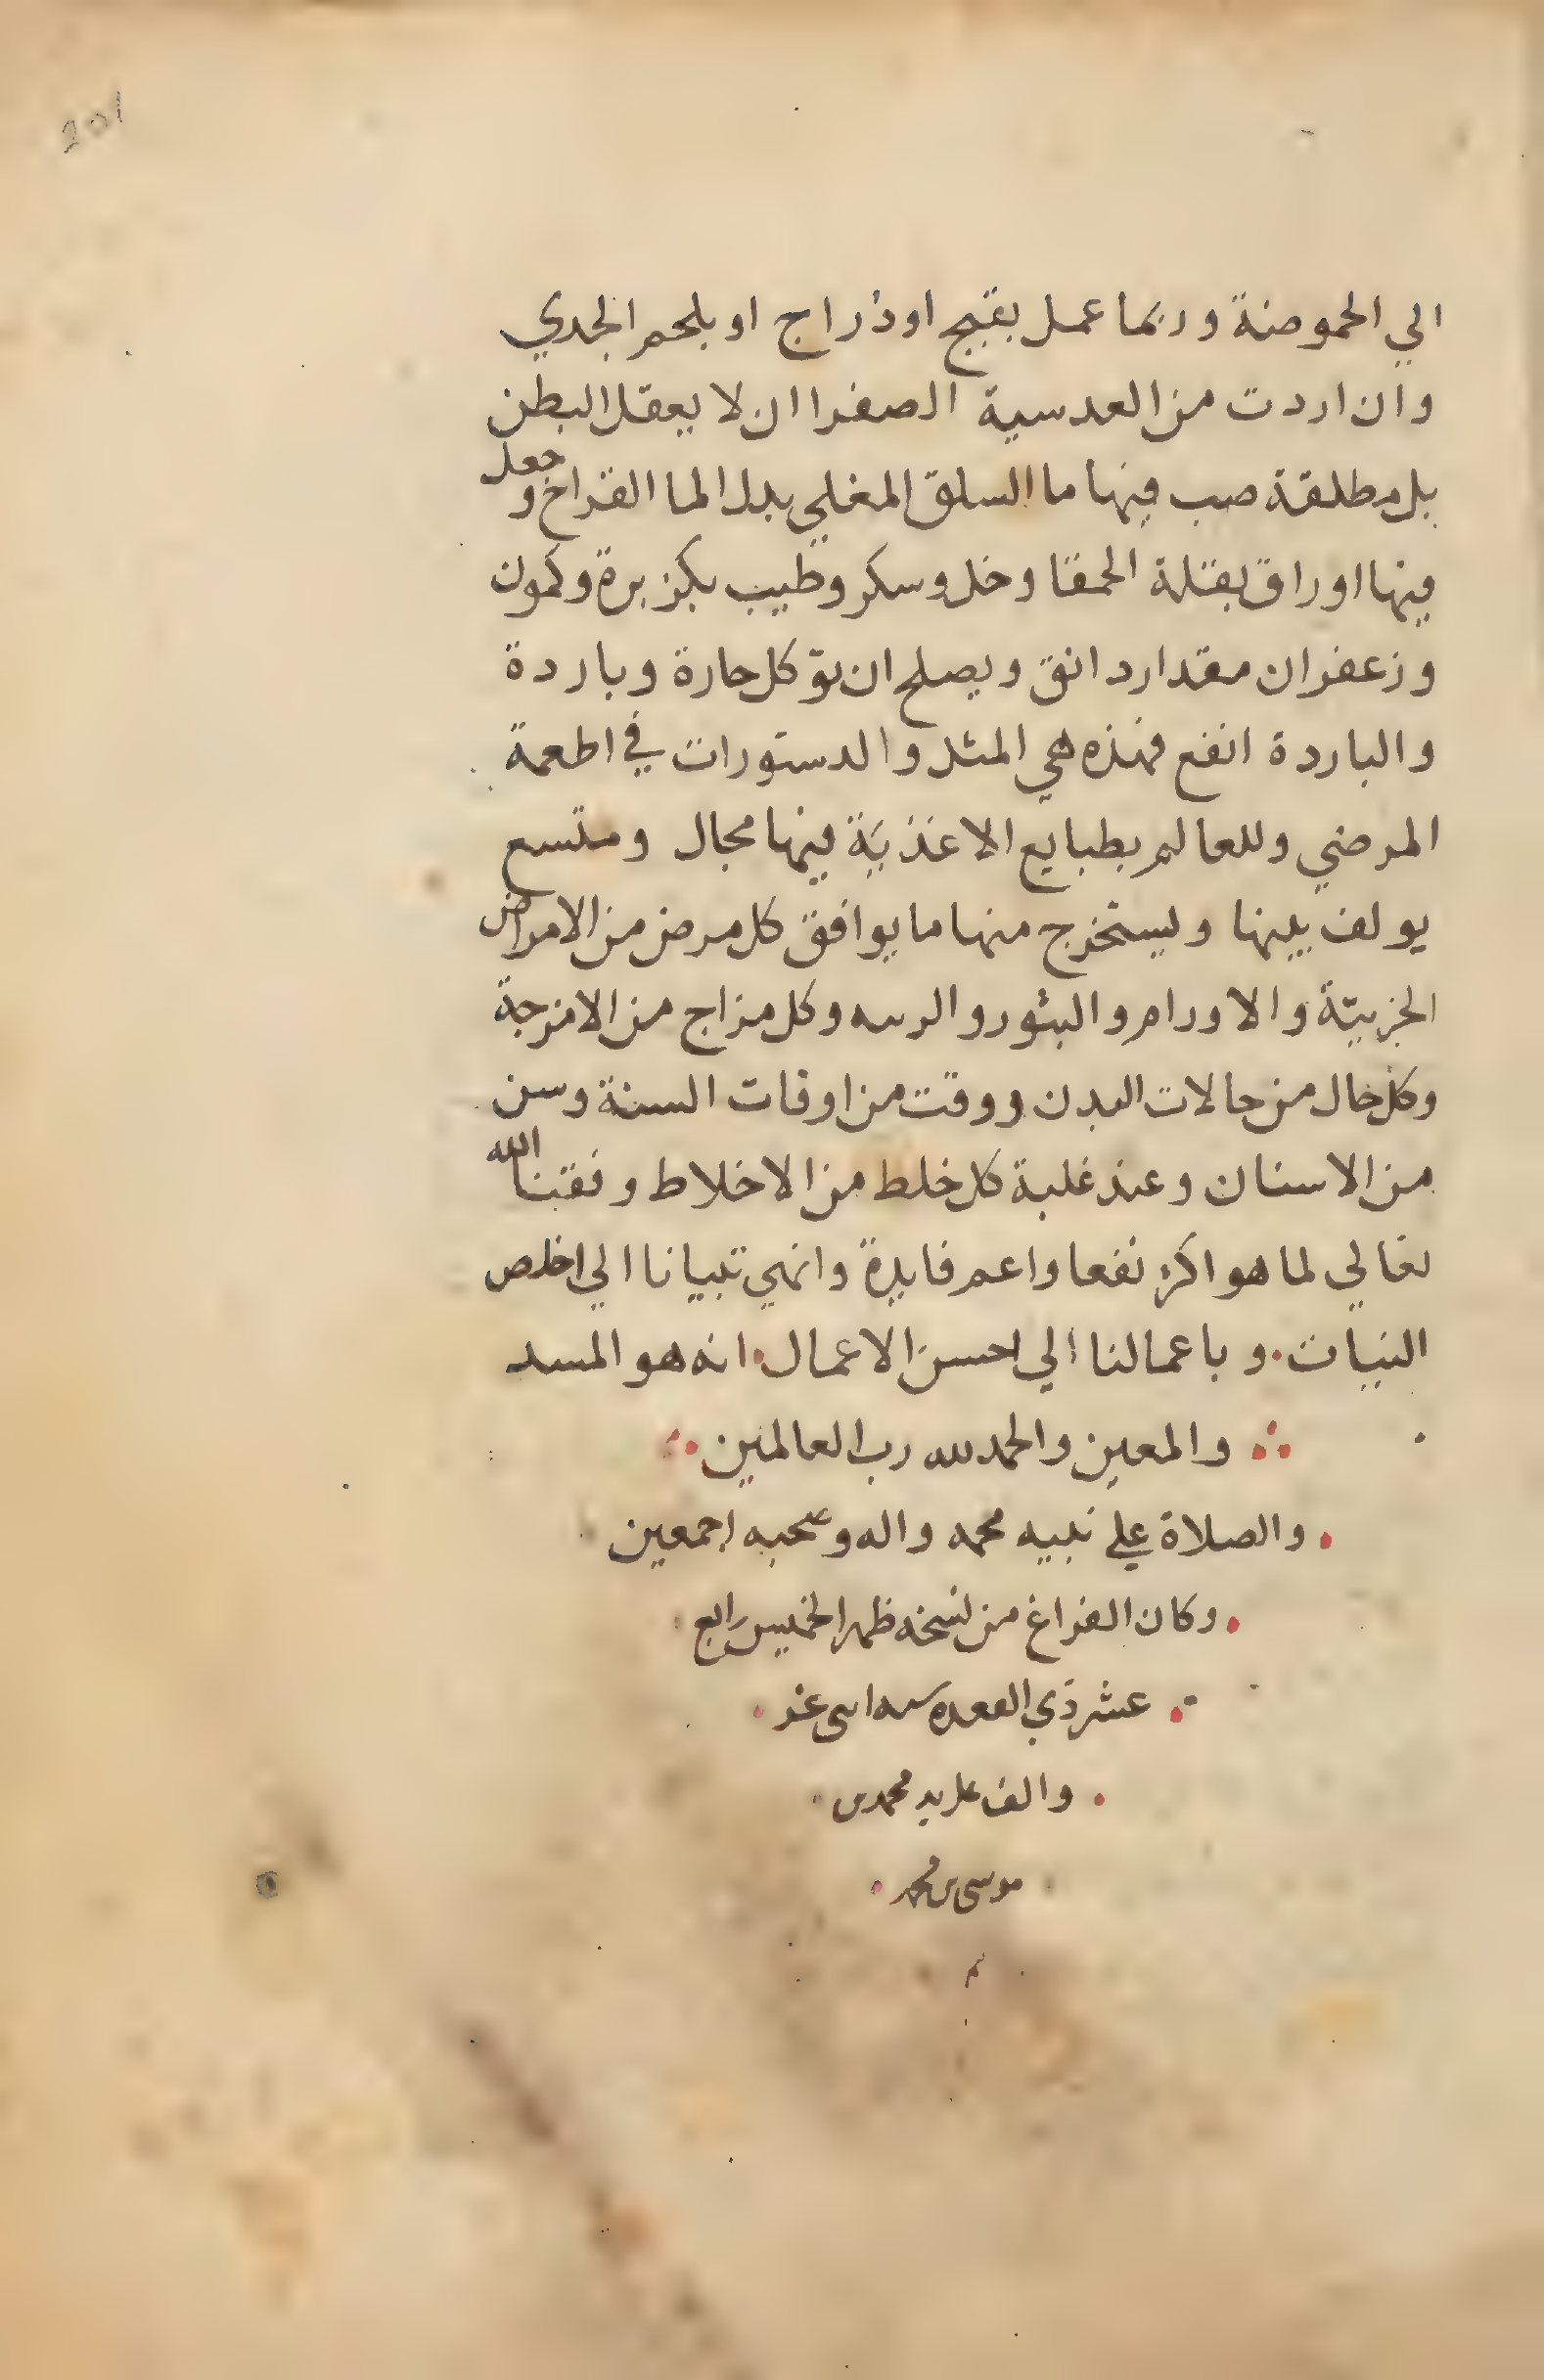 201
الي الحموضة وربما عمل بقبج او دراج او بلحم الجدي
وان اردت من العدسية الصفرا ان لا يعقل البطن
بل مطلقة صب فيها ما السلق المغلي بدل الما القراح و جعل
فيها اوراق بقلة الحمقا وخل وسكر وطيب بكزبرة وكمون
وزعفران مقدار دانق ويصلح ان توكل حارة وباردة
والباردة انفع فهذه هي المثل والدستورات في اطعمة
المرضي وللعالم بطبايع الاغذيَة فيها مجال ومتسع
يولف بينها ويستخرج منها ما يوافق كل مرض من الامراض
الجزييّة والاورام والبثور و وكل مزاج من الامزجة
وكل حال من حالات البدن ووقت من اوقات السنة وسن
من الاسنان وعند غلبة كل خلط من الاخلاط وفقنا الله
تعالي لما هو اكثر نفعا واعم فايدة وانهي نياتنا الي اخلص
النيات. وباعمالنا الي احسن الاعمال. انه هو المسدد
والمعين والحمد لله رب العالمين
والصلاة علي نبيه محمد واله وصحبه اجمعين
وكان الفراغ من نسخه ظهر الخميس رابع
عشر ذي القعده سنه اثنى عشر
والف على يد محمد بن
موسى بن محمد
تم